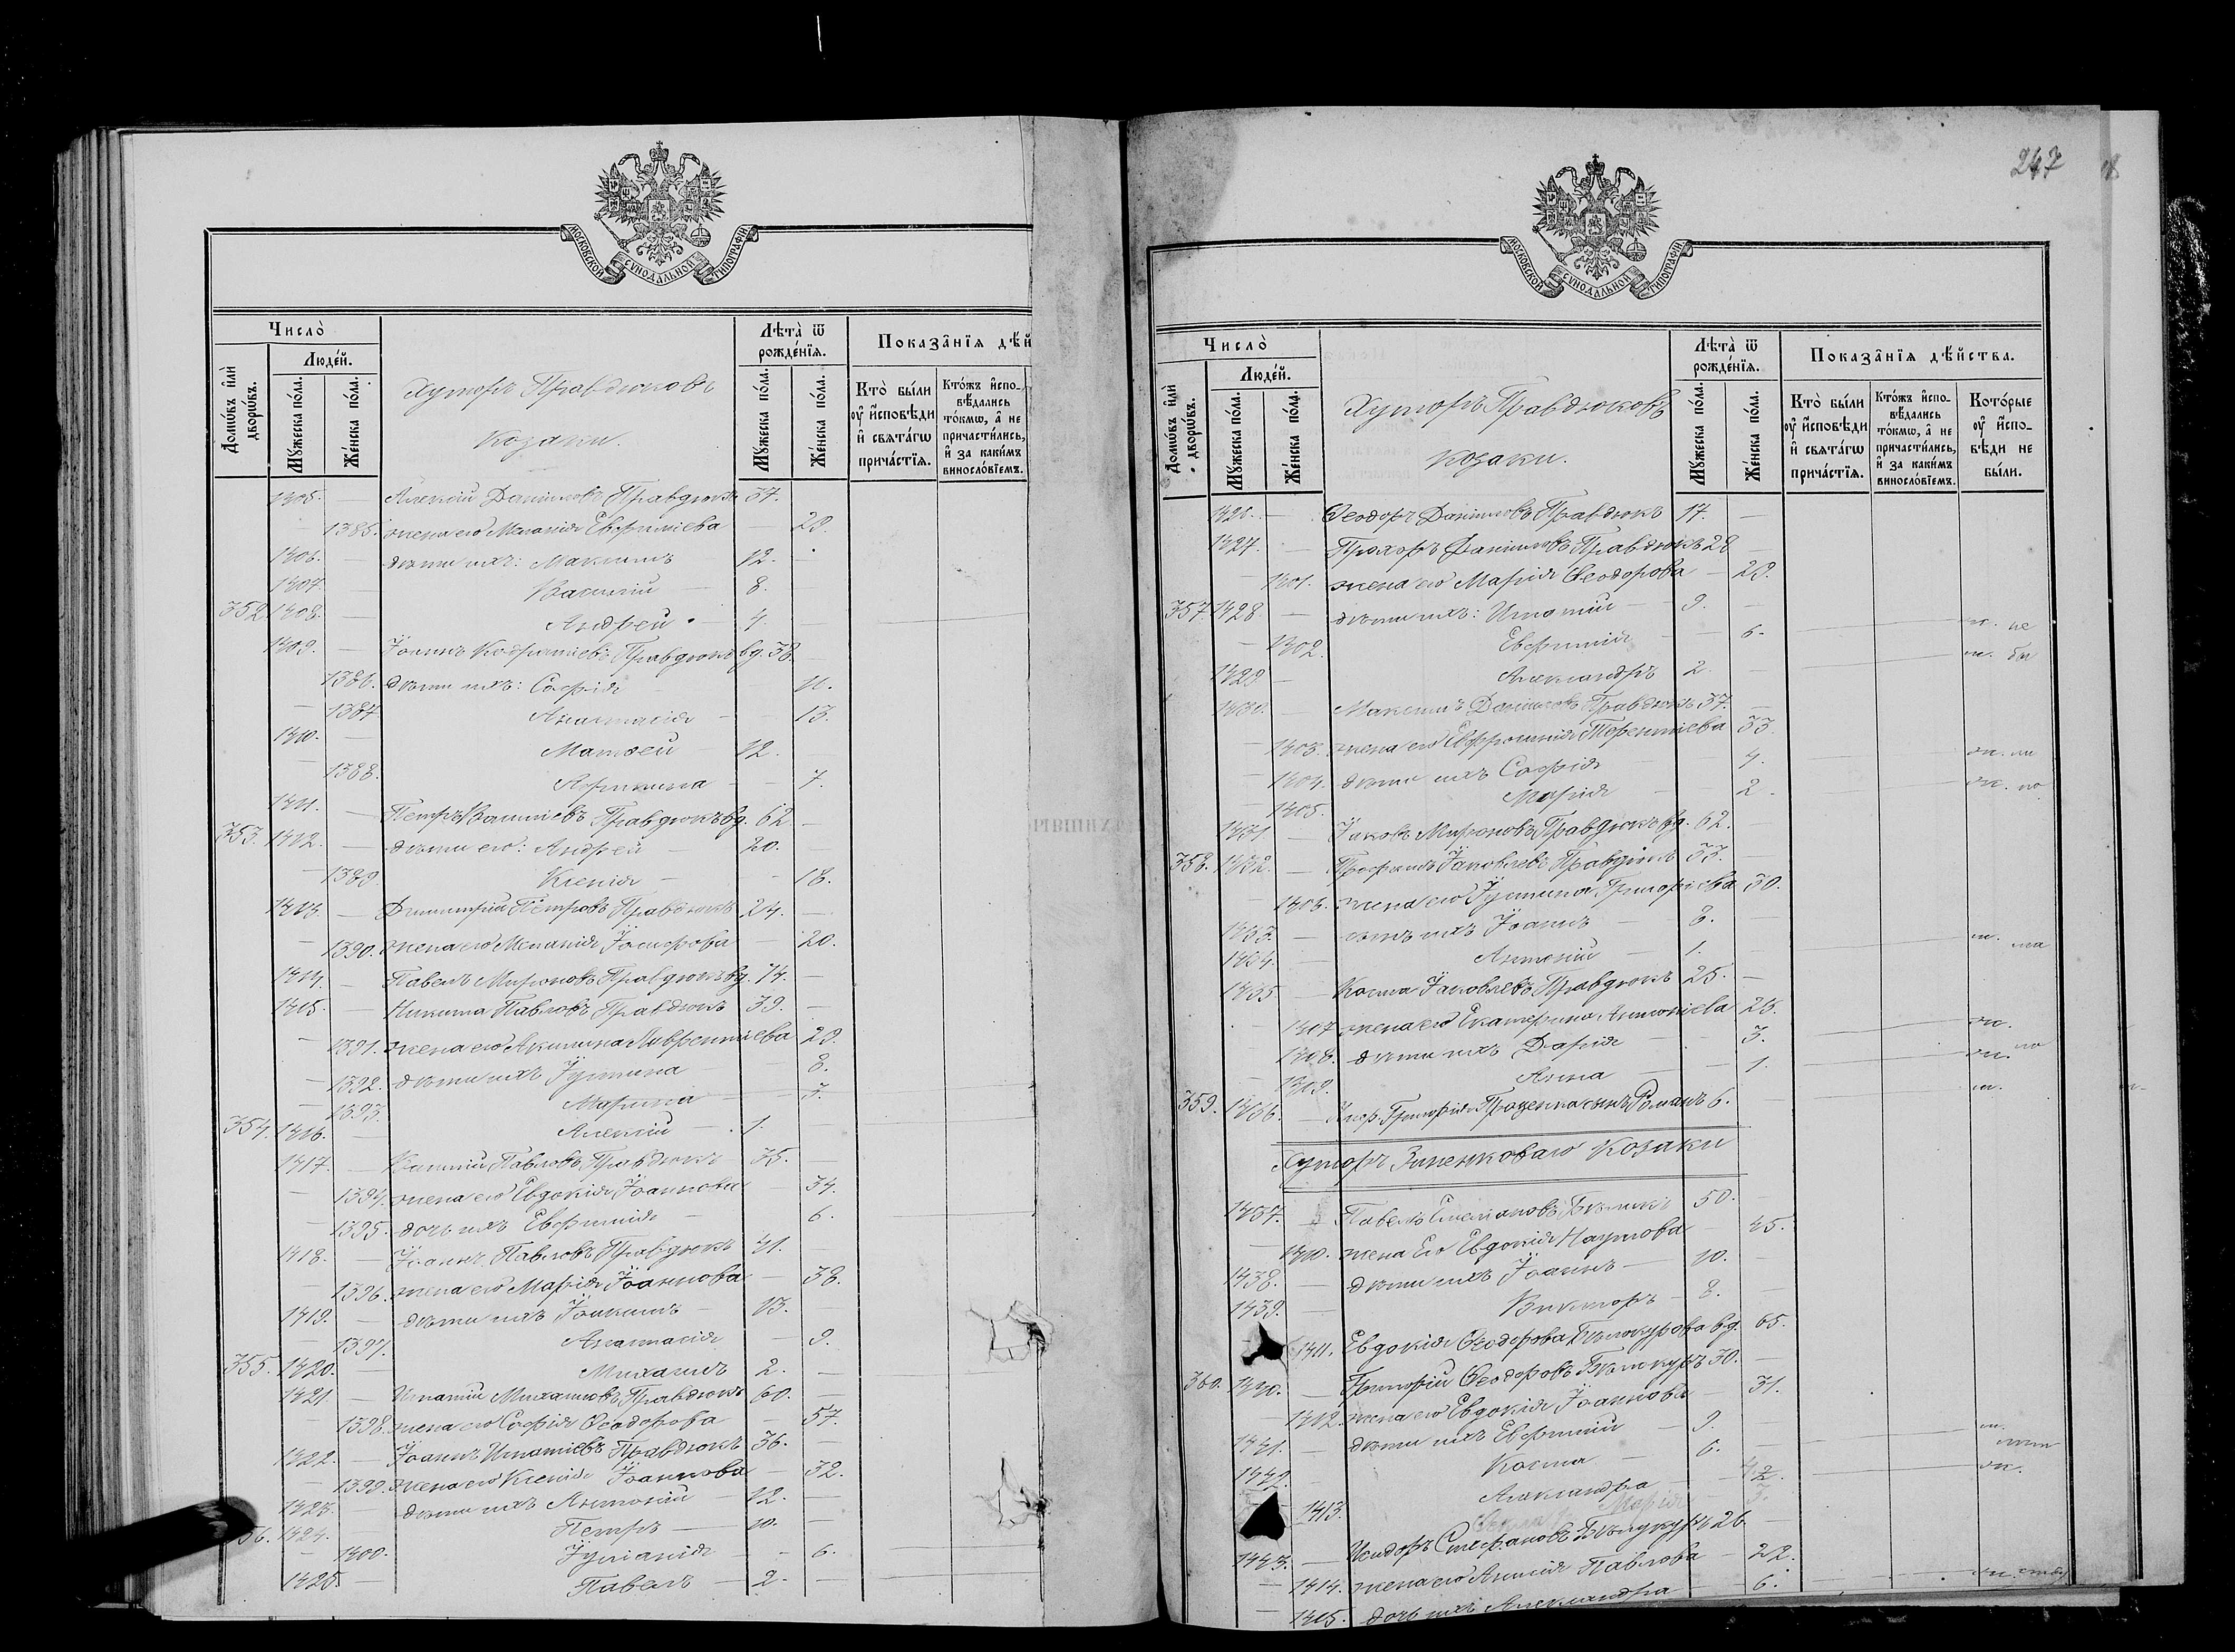 МОСКОВСКОЙ СѴНОДАЛЬНОЙ ТИПОГРАФІИ
Число̀
Людéй.
Домѡвъ и҆лѝ дворѡвъ.
Мꙋжеска по́ла.
Же́нска по́ла.
Хуторъ Правдюковъ
Козаки.
Лѣта̀ ѿ рожде́нїѧ.
Мꙋжеска по́ла.
Же́нска по́ла.
Показа̂нїѧ дѣй
Кто̀ бы́ли оу҆ и҆сповѣди и҆ свѧта́гѡ прича́стїѧ.
Кто́жъ и҆спо- вѣ́дались то́кмѡ, а҆ не причасти́лись, и҆ за каки́мъ винословїемъ.
1405. — Алексій Даніиловъ Правдюкъ 37.
1385. жена его Меланія Евфиміева 29.
1406. — дѣти ихъ: Максимъ 12. —
1407. — Василій 8. —
352. 1408. — Андрей 4. —
1409. — Іоаннъ Кодратіевъ Правдюкъ вд. 38. —
1386. дѣти ихъ: Софія 11.
— 1387 Анастасія — 13.
1410. — Матѳей 12.
— 1388. — 7.
1411. — Петръ Василіевъ Правдюкъ вд. 62 —
353. 1412. — дѣти его: Андрей — 20.
— 1389 Ксенія — 18.
1413. — Димитрій Петровъ Правдюкъ 24. —
— 1390. жена его Меланія Іосифова — 20.
1414. — Павелъ Мироновъ Правдюкъ вд. 74. —
1415. — Никита Павловъ Правдюкъ 39. —
— 1391. жена его Акилина Лаврентіева 29.
— 1392. дѣти ихъ Іустина 8.
— 1393. Марина — 3.
354. 1416. — Алексій — 1. —
1417. — Василій Павловъ Правдюкъ 35. —
— 1394. жена его Евдокія Іоаннова — 34.
— 1395. дочь ихъ Евфимія — 6.
1418. — Іоаннъ Павловъ Правдюкъ 41.
1396. жена его Марія Іоаннова — 38.
1419. — дѣти ихъ Іоакимъ 13. —
— 1397. Анастасія — 9.
355. 1420. — Михаилъ 2. —
1421. — Игнатій Михаиловъ Правдюкъ 60. —
— 1398. жена его Софія Ѳеодорова — 57.
1422. — Іоаннъ Игнатіевъ Правдюкъ 36. —
— 1399. жена его Ксенія Іоаннова — 32.
1423. — дѣти ихъ Антоній — 12. —
56. 1424. — Петръ — 10. —
— 1400. Іуліанія — 6.
1425. — Павелъ — 2. —
247
МОСКОВСКОЙ СѴНОДАЛЬНОЙ ТИПОГРАФІИ
Число̀
Людéй.
Домѡвъ и҆лѝ дворѡвъ.
Мꙋжеска по́ла.
Же́нска по́ла.
Хуторъ Правдюковъ
Козаки.
Лѣта̀ ѿ рожде́нїѧ.
Мꙋжеска по́ла.
Же́нска по́ла.
Показа̂нїѧ дѣ́йства.
Кто̀ бы́ли оу҆ и҆сповѣди и҆ свѧта́гѡ прича́стїѧ.
Кто́жъ и҆спо- вѣ́дались то́кмѡ, а҆ не причасти́лись, и҆ за каки́мъ винословїемъ.
Кото́рые оу҆ и҆спо- вѣди не бы́ли.
1426. — Ѳеодоръ Даніиловъ Правдюкъ 17. —
1427. — Прохоръ Даніиловъ Правдюкъ 28
— 1401. жена его Марія Ѳеодорова — 29.
357. 1428. — дѣти ихъ: Игнатій — 9. —
— 1402. Евфимія — 6.
1429 — Александръ 2. —
1430. — Максимъ Даніиловъ Правдюкъ 37. —
— 1403. жена его Евфросинія Терентіева 33.
— 1404. дѣти ихъ Софія — 4.
— 1405. Марія 2.
1431 — Іаковъ Мироновъ Правдюкъ вд. 62. —
358. 1432. — Трофимъ Іаковлевъ Правдюкъ 33. —
— 1406. жена его Іустина Григоріева 30.
1433. — сынъ ихъ Іоаннъ — 8. —
1434. — Антоній — 1. —
1435 — Косма Іаковлевъ Правдюкъ 25. —
1407 жена его Екатерина Антоніева 26.
— 1408. дѣти ихъ Дарія — 3.
— 1409. Анна — 1.
359. 1436. — Григорія Проценка сынъ Романъ 6. —
Хуторъ Зиненковаго Козаки
1437. — Павелъ 50. —
— 1410. жена Его Евдокія Наумова 45.
1438. — дѣти ихъ Іоаннъ — 10. —
1439. — Викторъ — 8. —
1411. Евдокія Ѳеодорова Бѣлокурова вд. 65.
360. 1440. — Григорій Ѳеодоровъ Бѣлокуръ 30. —
1412. жена его Евдокія Іоаннова — 31.
1441. — дѣти ихъ Евфимій — 9.
1442. — Косма — 6. —
1413. Александра — 2.
Марія 3.
1443. — Исидоръ Стефановъ Бѣлукуръ 26 —
— 1414. жена его Анисія Павлова — 22.
— 1415. дочь ихъ Александра — 6.